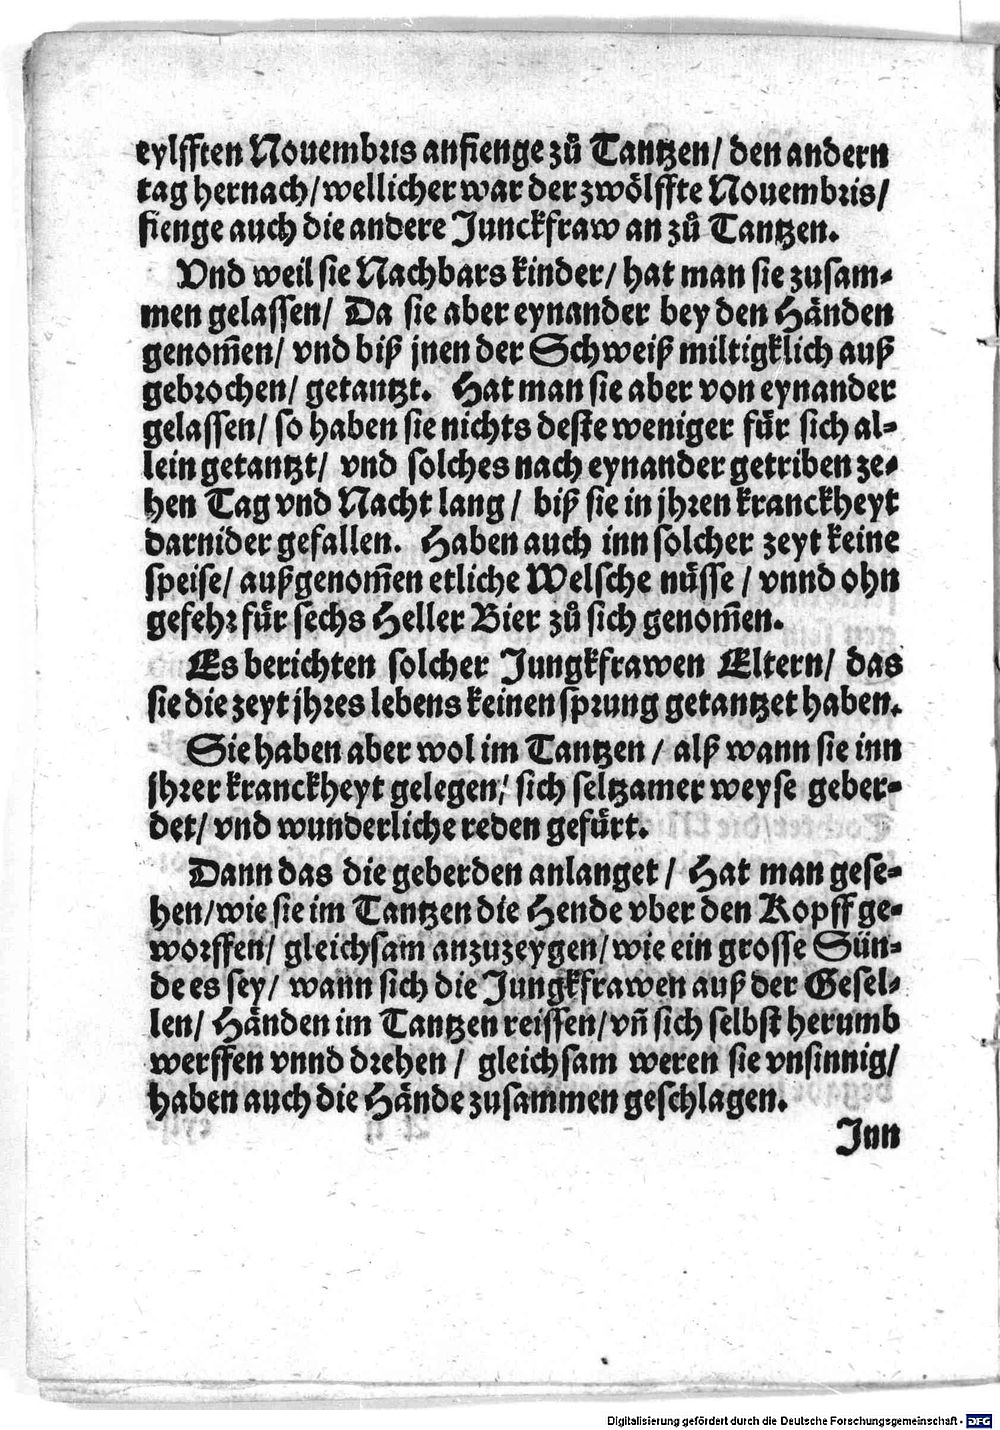 eylfften Nouembris anfienge zů Tantzen/ den andern
tag hernach/ wellicher war der zwölffte Nouembris/
fienge auch die andere Junckfraw an zů Tantzen.
Vnd weil sie Nachbars kinder/ hat man sie zusam⸗
men gelassen/ Da sie aber eynander bey den Händen
genom̄en/ vnd biß jnen der Schweiß miltigklich auß
gebrochen/ getantzt. Hat man sie aber von eynander
gelassen/ so haben sie nichts deste weniger für sich al⸗
lein getantzt/ vnd solches nach eynander getriben ze⸗
hen Tag vnd Nacht lang/ biß sie in jhren kranckheyt
darnider gefallen. Haben auch inn solcher zeyt keine
speise/ außgenom̄en etliche Welsche nüsse/ vnnd ohn
gefehr für sechs Heller Bier zů sich genom̄en.
Es berichten solcher Jungkfrawen Eltern/ das
sie die zeyt jhres lebens keinen sprung getantzet haben.
Sie haben aber wol im Tantzen/ alß wann sie inn
jhrer kranckheyt gelegen/ sich seltzamer weyse geber⸗
det/ vnd wunderliche reden gefürt.
Dann das die geberden anlanget/ Hat man gese⸗
hen/ wie sie im Tantzen die Hende vber den Kopff ge⸗
worffen/ gleichsam anzuzeygen/ wie ein grosse Sün⸗
de es sey/ wann sich die Jungkfrawen auß der Gesel⸗
len/ Händen im Tantzen reissen/ vn̄ sich selbst herumb
werffen vnnd drehen/ gleichsam weren sie vnsinnig/
haben auch die Hände zusammen geschlagen.
Inn
Digitalisierung gefördert durch die Deutsche Forschungsgemeinschaft - DFG